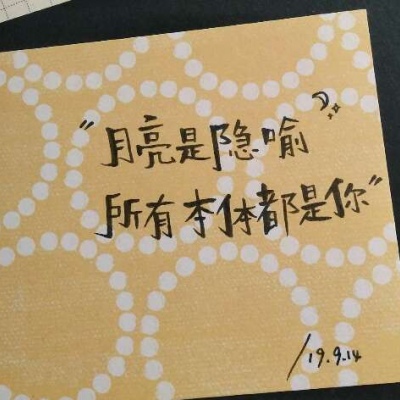 "月亮是隐喻
所有本体都是你"
/19.9.14